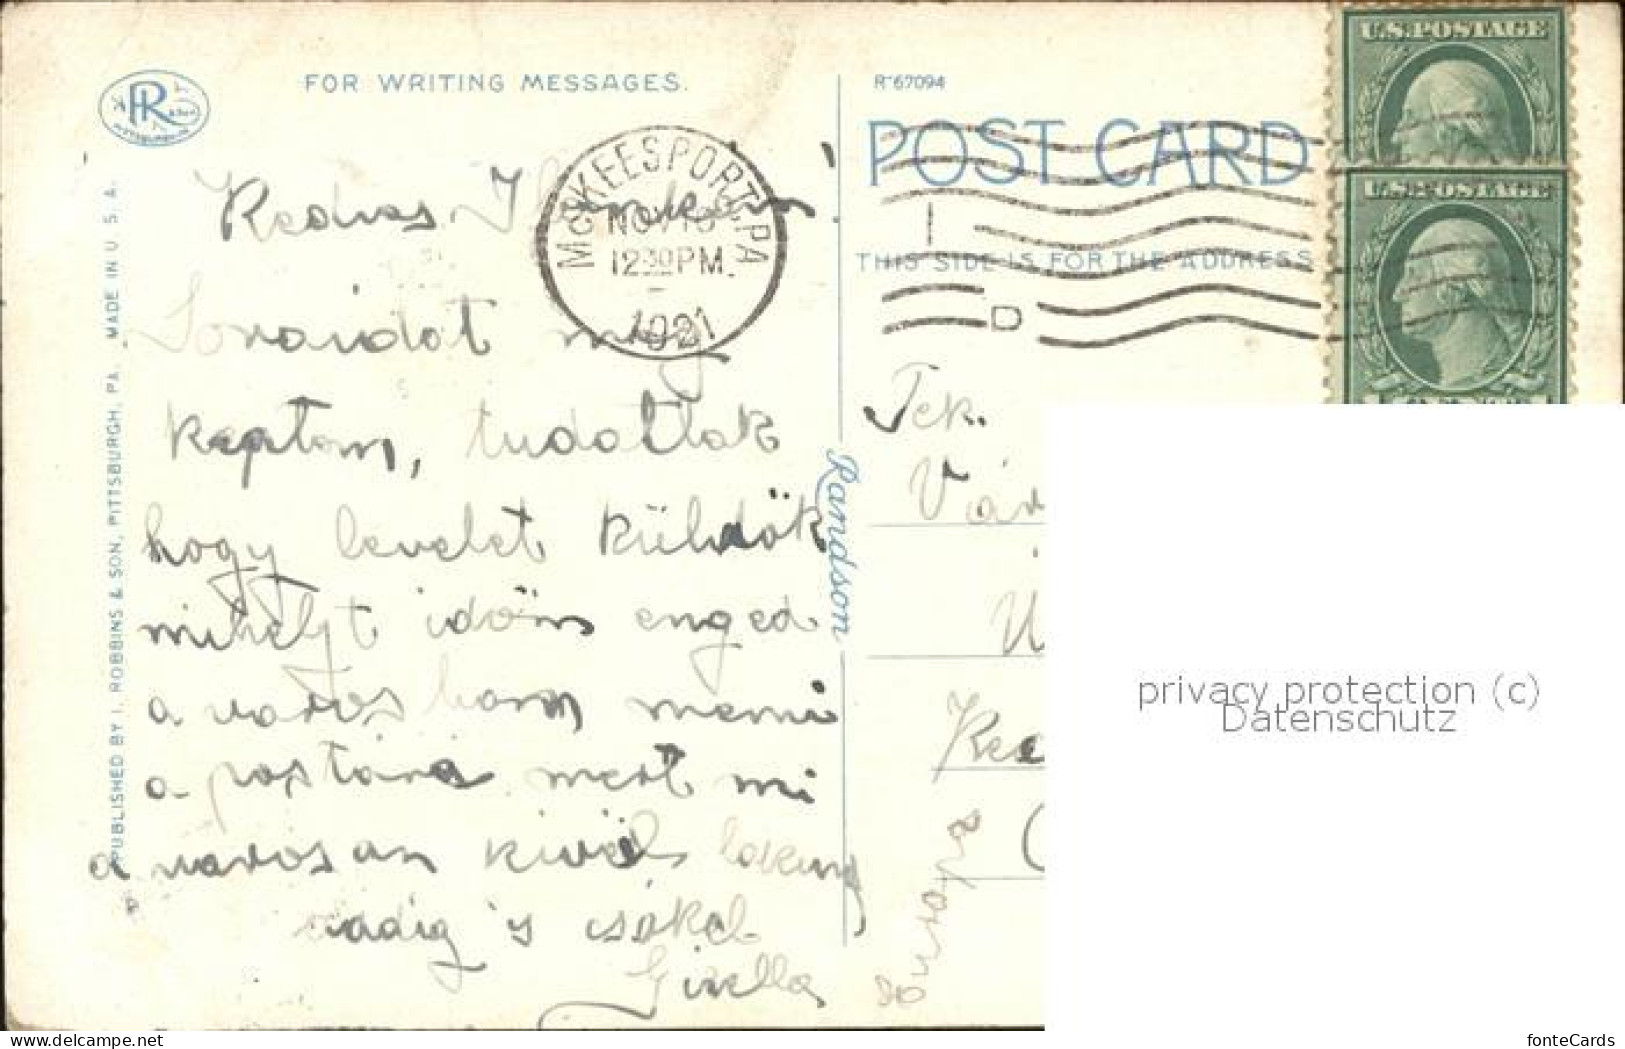 FOR WRITING MESSAGES.
R-67094
POST CARD
THIS SIDE IS FOR THE ADDRESS
U.S.POSTAGE
U.S.POSTAGE
McKEESPORT, PA
NOV 18
12 30 PM
1921
D
PUBLISHED BY I. ROBBINS & SON, PITTSBURGH, PA. MADE IN U. S. A.
Randson
Kedves
Soraidat meg
kaptam, tudatlak
hogy levelet küldök
mihelyt időm enged
a városban menni
a postára mert mi
a városon kivül lakunk
addig is csókol
Gizella
Tek.
Vár
U
Europa
privacy protection (c)
Datenschutz
delcampe.net
fonteCards